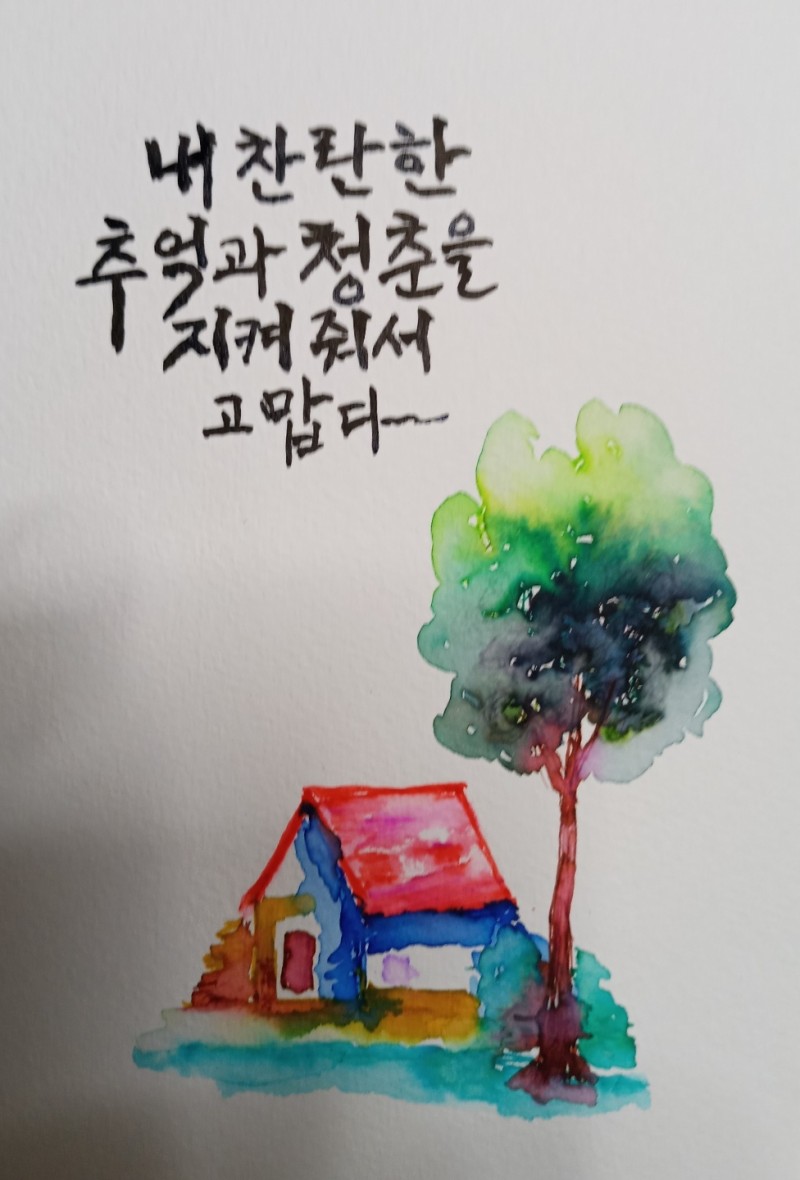 내 찬란한
추억과 청춘을
지켜 줘서
고맙다~